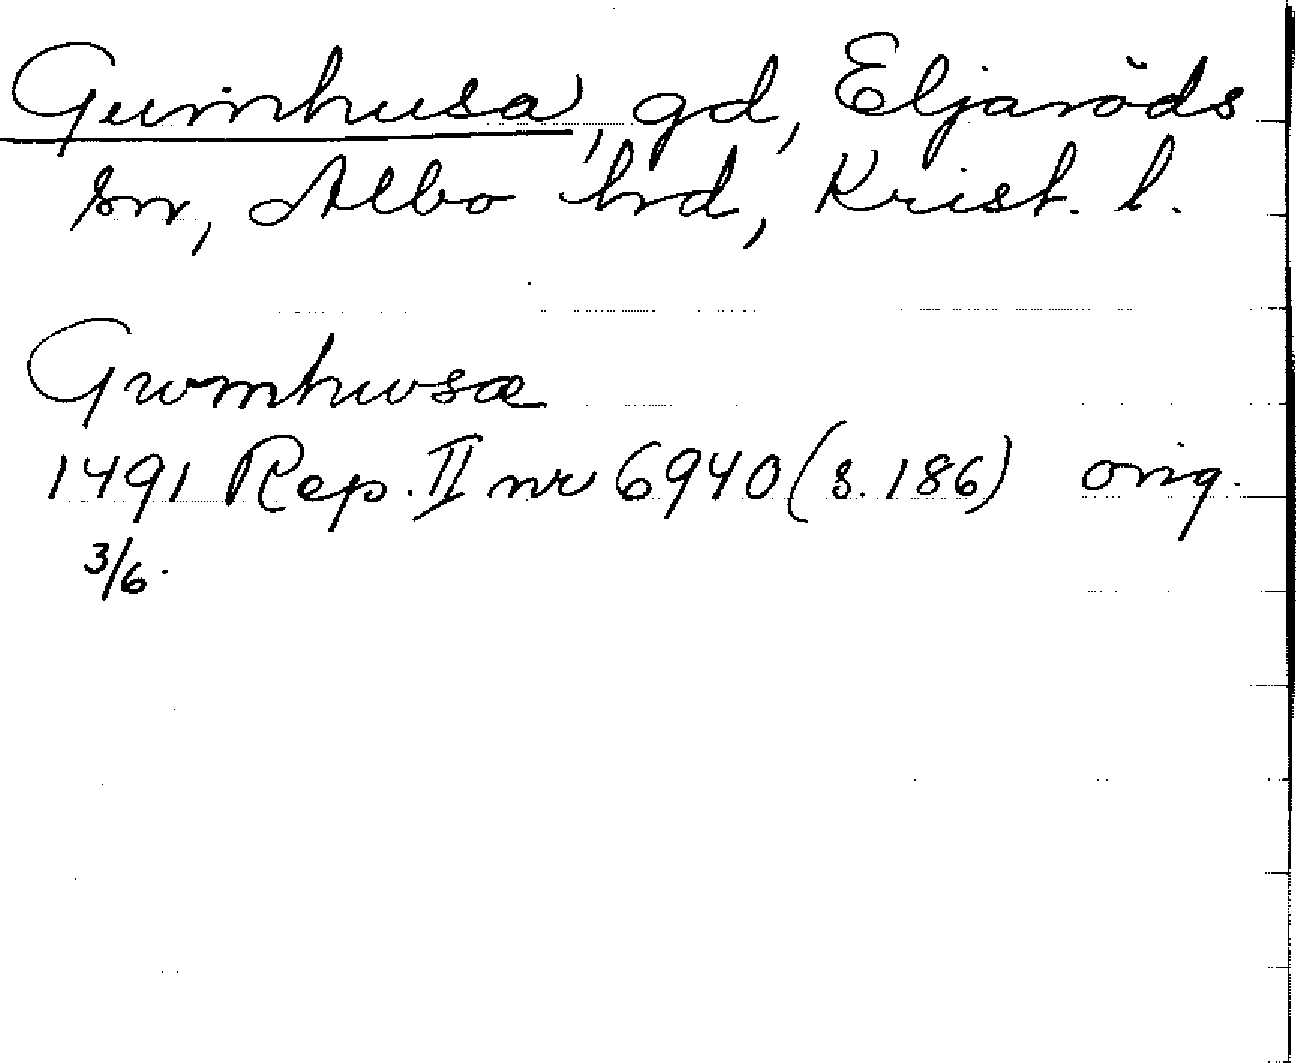 Gumhusa, gd, Eljaröds
sn, Albo hrd, Krist. l.
Gwmhwsæ
1491 Rep. II nr 6940 (s. 186) orig.
3/6.